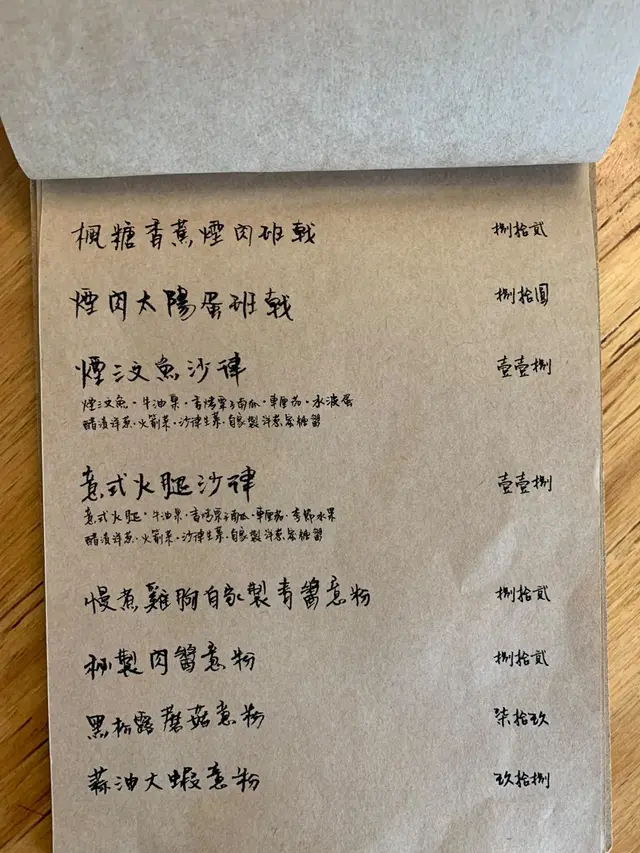 楓糖香蕉煙肉班戟 捌拾貳
煙肉太陽蛋班戟 捌拾圓
煙三文魚沙律 壹壹捌
煙三文魚·牛油果·香烤栗子南瓜·車厘茄·水波蛋
醋漬洋蔥·火箭菜·沙律生菜·自家製洋蔥黑糖醬
意式火腿沙律 壹壹捌
意式火腿·牛油果·香烤栗子南瓜·車厘茄·季節水果
醋漬洋蔥·火箭菜·沙律生菜·自家製洋蔥黑糖醬
慢煮雞胸自家製青醬意粉 捌拾貳
秘製肉醬意粉 捌拾貳
黑松露蘑菇意粉 柒拾玖
蒜油大蝦意粉 玖拾捌